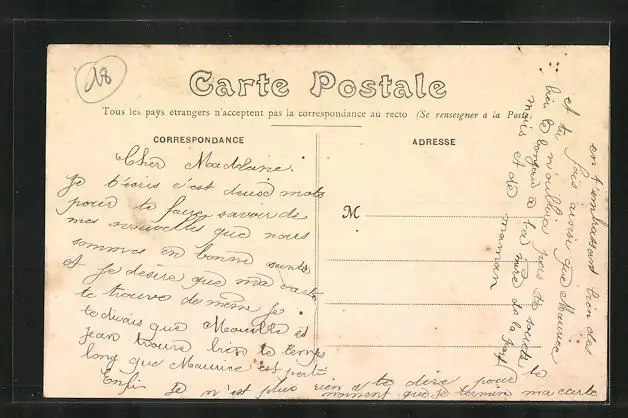 18
Carte Postale
Tous les pays etrangers n'acceptent pas la correspondance au recto (Se renseigner a la Poste)
CORRESPONDANCE
ADRESSE
M
Cher Madelaine.
Je t'écris c'est deux mots
pour te faire savoir de
mes nouvelles que nous
sommes en bonne santé
et je désire que ma carte
te trouve de même je
te dirais que et
Jean trouve bien le temps
long que Maurice est partit
Enfin Je n'est plus rien a te dire pour le
moment que je termin ma carte
en t'embrassant bien des
et tu fois avoir que Maurice
bien n'oublie pas de
bonjour a la mère de la
mois et de maman